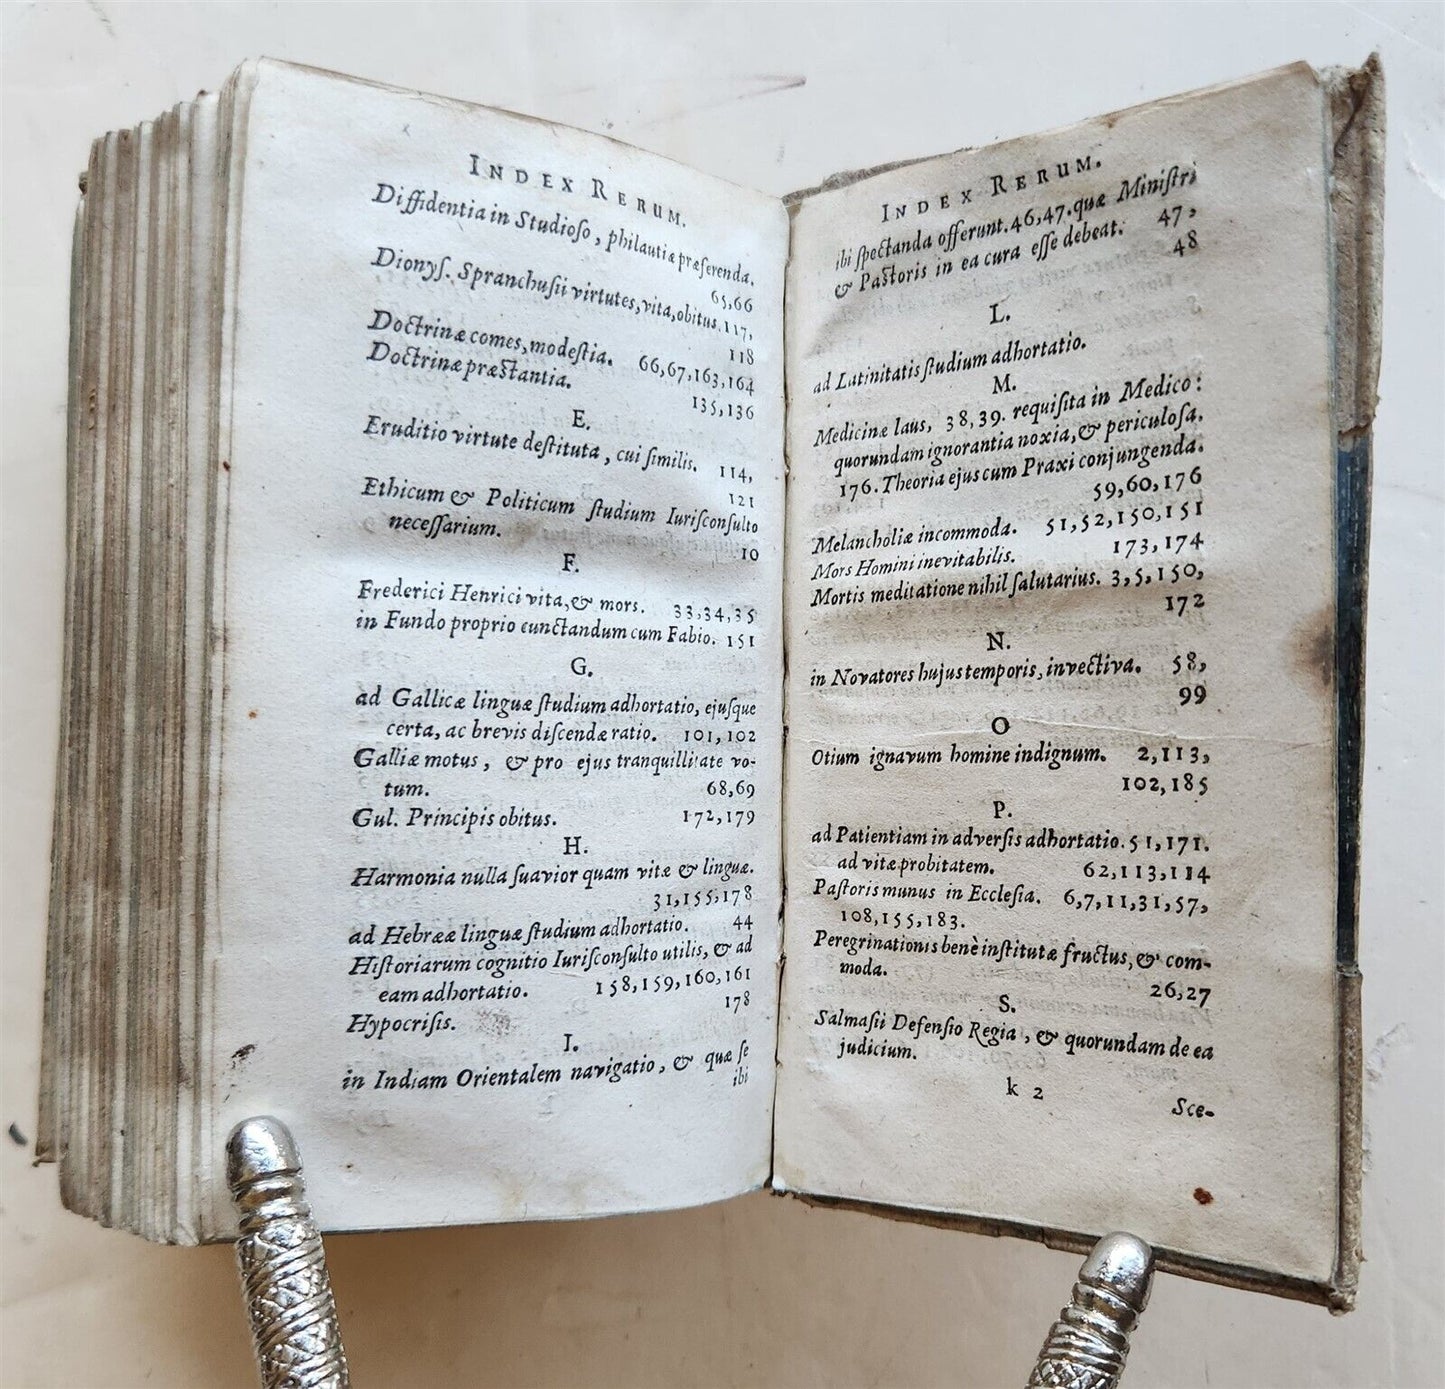 INDEX RERUM.
Diffidentia in Studioso, philautiæ præferenda.
65,66
Dionyſ. Spranchuſii virtutes, vita, obitus. 117,
118
Doctrinæ comes, modeſtia. 66,67,163,164
Doctrinæ præſtantia. 135,136
E.
Eruditio virtute deſtituta, cui ſimilis. 114,
121
Ethicum & Politicum ſtudium Iuriſconſulto
neceſſarium. 10
F.
Frederici Henrici vita, & mors. 33,34,35
in Fundo proprio cunctandum cum Fabio. 151
G.
ad Gallicæ linguæ ſtudium adhortatio, ejuſque
certa, ac brevis diſcendæ ratio. 101,102
Galliæ motus, & pro ejus tranquillitate vo-
tum. 68,69
Gul. Principis obitus. 172,179
H.
Harmonia nulla ſuavior quam vitæ & linguæ.
31,155,178
ad Hebrææ linguæ ſtudium adhortatio. 44
Hiſtoriarum cognitio Iuriſconſulto utilis, & ad
eam adhortatio. 158,159,160,161
Hypocriſis. 178
I.
in Indiam Orientalem navigatio, & quæ ſe
ibi
INDEX RERUM.
ibi ſpectanda offerunt. 46,47. quæ Miniſtri
& Paſtoris in ea cura eſſe debeat. 47,
48
L.
ad Latinitatis ſtudium adhortatio.
M.
Medicinæ laus, 38,39. requiſita in Medico:
quorundam ignorantia noxia, & periculoſa.
176. Theoria ejus cum Praxi conjungenda.
59,60,176
Melancholiæ incommoda. 51,52,150,151
Mors Homini inevitabilis. 173,174
Mortis meditatione nihil ſalutarius. 3,5,150,
172
N.
in Novatores hujus temporis, invectiva. 58,
99
O
Otium ignavum homine indignum. 2,113,
102,185
P.
ad Patientiam in adverſis adhortatio. 51,171.
ad vitæ probitatem. 62,113,114
Paſtoris munus in Eccleſia. 6,7,11,31,57,
108,155,183.
Peregrinationis benè inſtitutæ fructus, & com-
moda. 26,27
S.
Salmaſii Defenſio Regia, & quorundam de ea
judicium.
k 2
Sce-